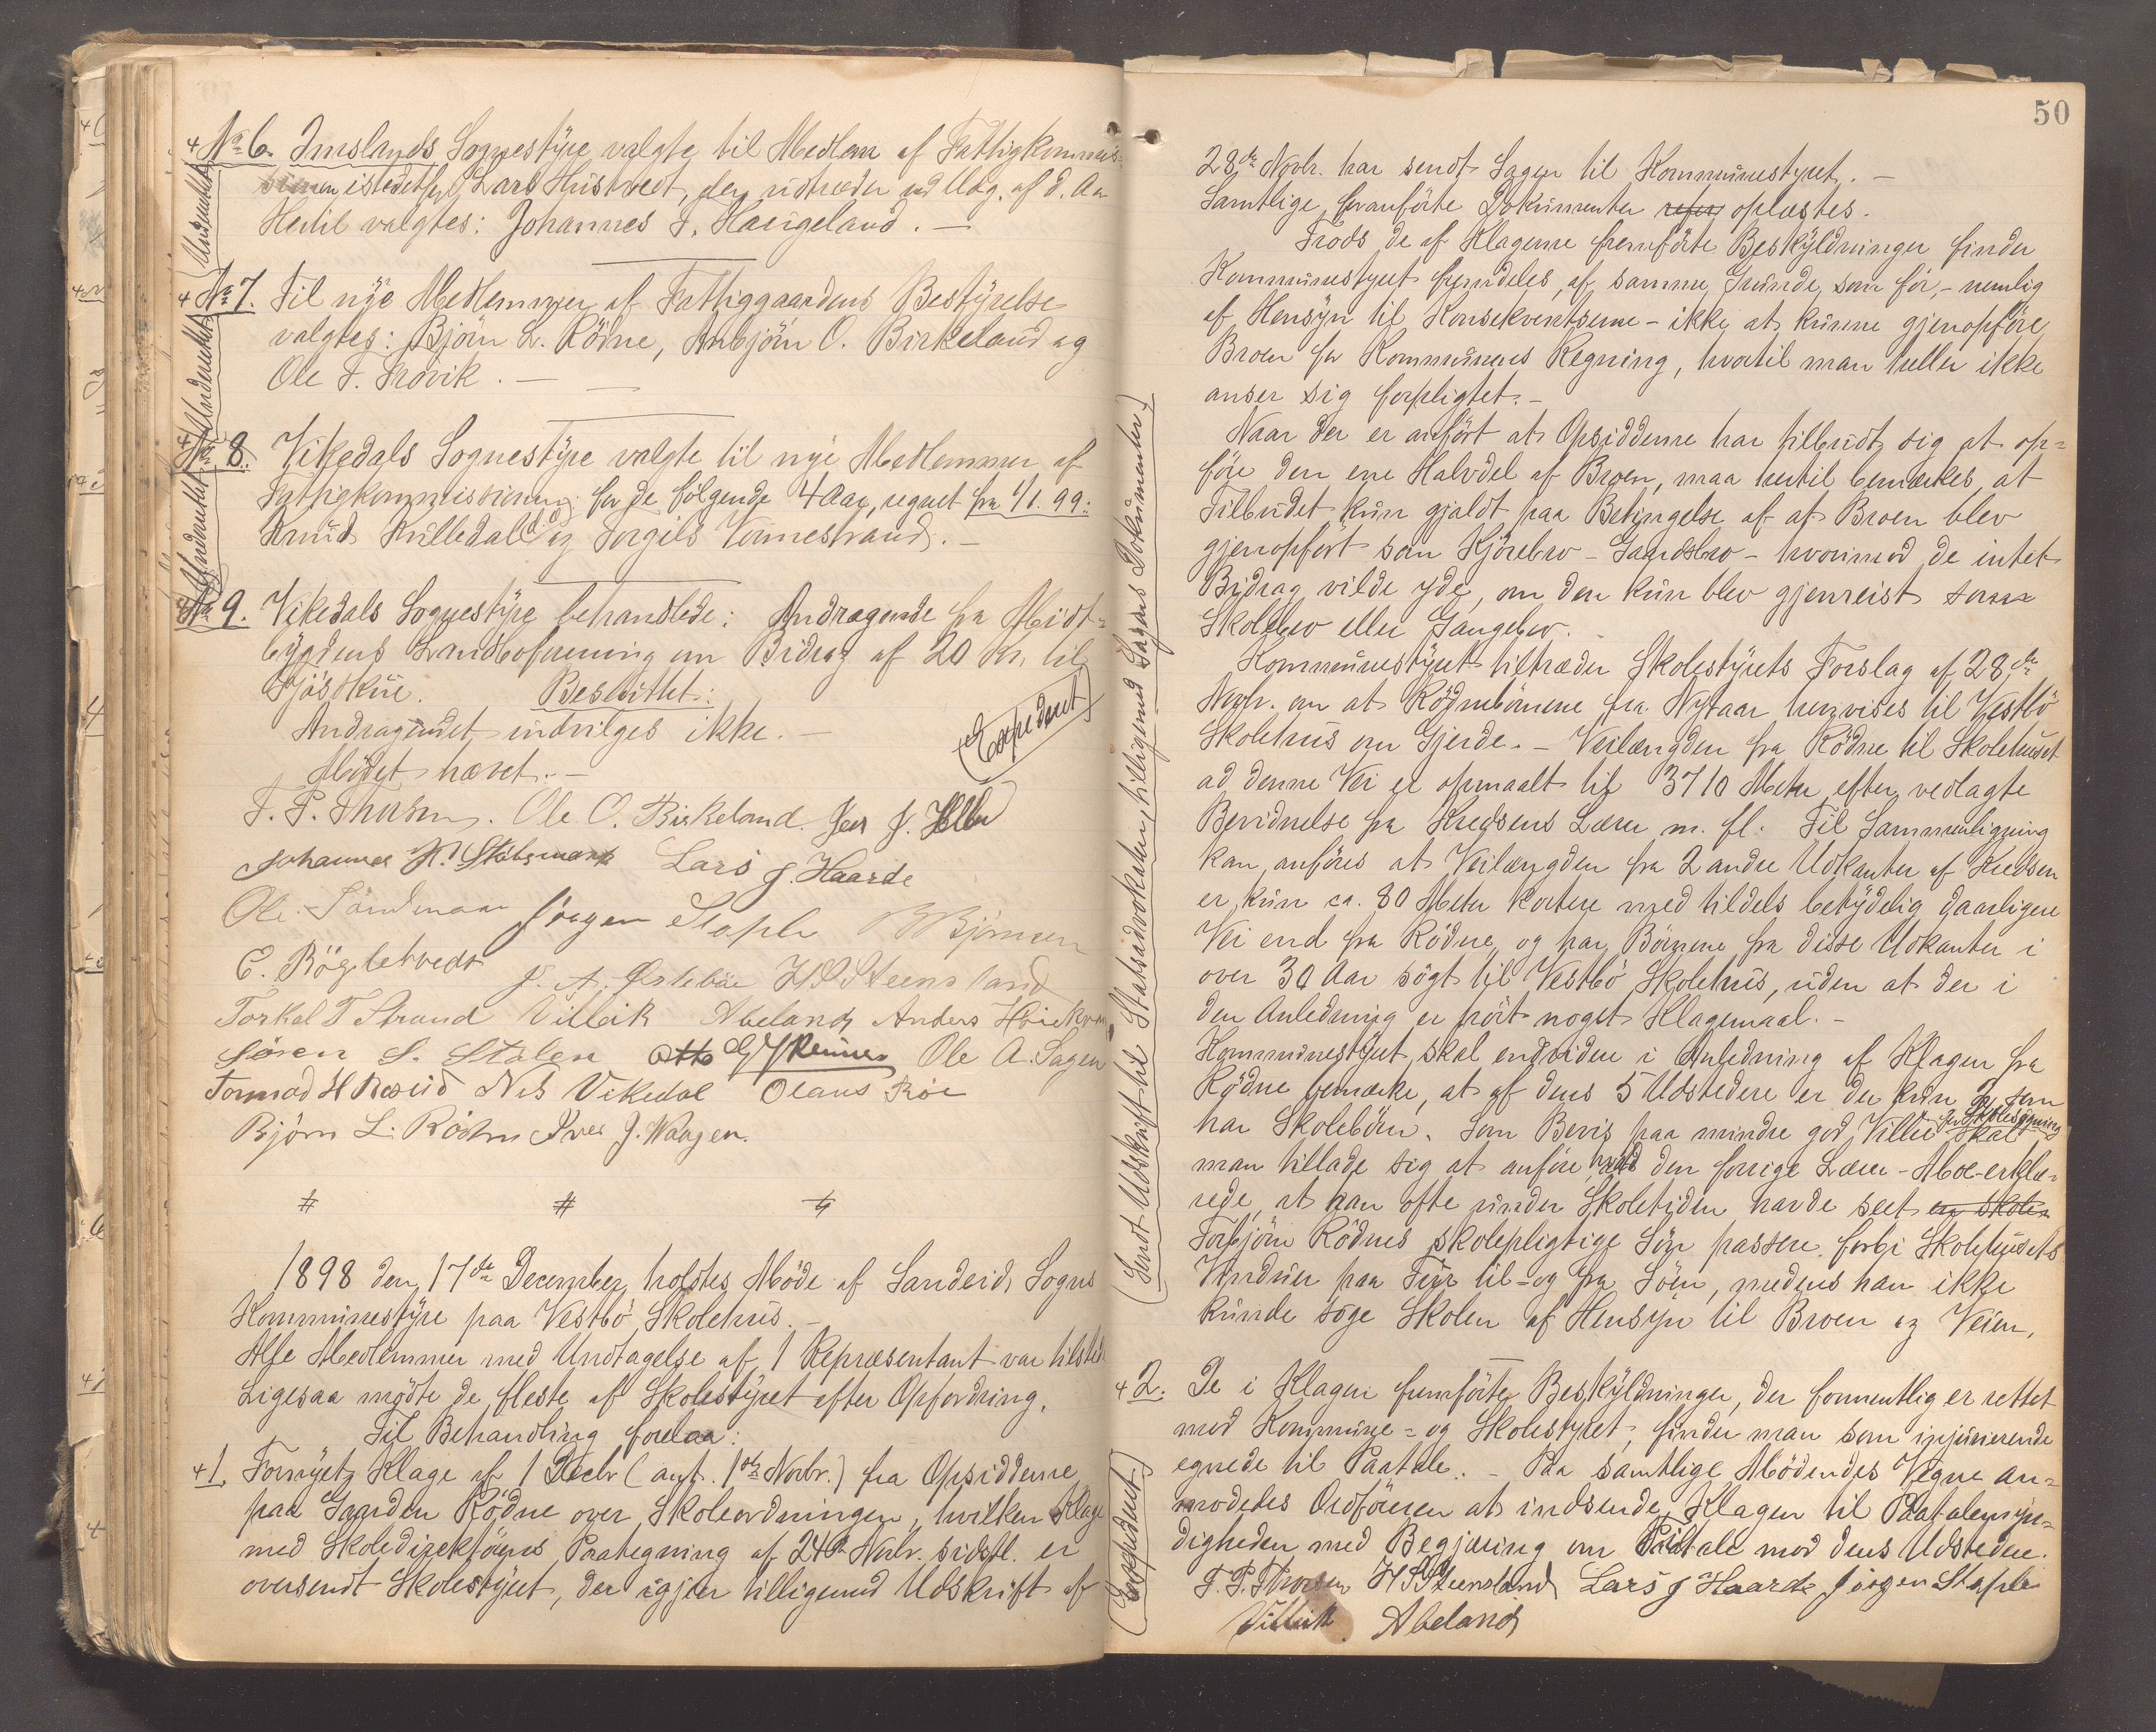 No 6. Imslands Sognestyre valgte til Medlem af Fattigkommis-
sionen istedetfor Lars Hustvedt, der udtræder ved Udg. af d. Aar
Hertil valgtes: Johannes T. Haugeland. —
Underrettet
No 7. Til nye Medlemmer af Fattiggaardens Bestyrelse
valgtes: Björn L. Rödne, Anbjörn O. Birkeland og
Ole T. Trovik. —
Underrettet
No 8. Vikedals Sognestyre valgte til nye Medlemmer af
Fattigkommissionen for de fölgende 4 Aar, regnet fra 1/1. 99:
Knud Kulledal d.æ. og Torgils Vormestrand. —
Underrettet
No 9. Vikedals Sognestyre behandlede: Andragende fra Midt-
bygdens Landboforening om Bidrag af 20 Kr. til
Fjöskue. Besluttet:
Andragendet indvilges ikke. —
(Expederet)
Mödet hævet. —
T. P. Thorsen. Ole O. Birkeland. Jens J.
Johannes H. Lars J. Haarde
Ole Sandmoen Jörgen Stople B Björnsen
E. Bögletvedt J. A. Östeböe H S Steensland
Torkel T Strand Villeik Abeland Anders
Sören S. Stölen Otto Ole A. Sagen
Tormod H Nils Vikedal Olaus Röe
Björn L. Rödne Iver J. Waagen.
# # #
1898 den 17de December holdtes Möde af Sandeid Sogns
Kommunestyre paa Vestbö Skolehus. —
Alle Medlemmer med Undtagelse af 1 Repræsentant var tilstede
Ligesaa mödte de fleste af Skolestyret efter Opfordring.
Til Behandling forelaa:
+ 1. Fornyet Klage af 1 Decbr (ant. 1ste Novbr.) fra Opsidderne
paa Gaarden Rödne over Skoleordningen, hvilken Klage
med Skoledirektörens Paategning af 24de Novbr. sidstl. er
oversendt Skolestyret, der igjen tilligemed Udskrift af
50
28de Novbr. har sendt Sagen til Kommunestyret. —
Samtlige foranförte Dokumenter refer oplæstes.
Trods de af Klagerne fremförte Beskyldninger finder
Kommunestyret fremdeles, af samme Grunde som för, – nemlig
af Hensyn til Konsekventserne – ikke at kunne gjenopföre
Broen for Kommunens Regning, hvortil man heller ikke
anser sig forpligtet. —
Naar der er anfört at Opsidderne har tilbudt sig at op-
före den ene Halvdel af Broen, maa hertil bemærkes, at
Tilbudet kun gjaldt paa Betingelse af at Broen blev
gjenopfört som Kjörebro – Gaardsbro – hvorimod de intet
Bidrag vilde yde, om den kun blev gjenreist som
Skolebro eller Gangebro.
Kommunestyret tiltræder Skolestyrets Forslag af 28de
Novbr. om at Rödnebörnene fra Nytaar henvises til Vestbö
Skolehus om Gjerde. – Veilængden fra Rödne til Skolehuset
ad denne Vei er opmaalt til 3710 Meter efter vedlagte
Bevidnelse fra Kredsens Lærer m. fl. Til Sammenligning
kan anföres at Veilængden fra 2 andre Udkanter af Kredsen
er kun ca. 80 Meter kortere med tildels betydelig daarligere
Vei end fra Rödne, og har Börnene fra disse Udkanter i
over 30 Aar sögt til Vestbö Skolehus, uden at der i
den Anledning er hört noget Klagemaal. —
Kommunestyret skal endvidere i Anledning af Klagen fra
Rödne bemærke, at af dens 5 Udstedere er der kun 2 som
har Skolebörn. Som Bevis paa mindre god Villie for Skolesögning skal
man tillade sig at anföre, hvad den forrige Lærer – Moe – erklæ-
rede, at han ofte under Skoletiden havde seet en Skole
Torbjörn Rödnes skolepligtige Sön passere forbi Skolehusets
Vinduer paa Tur til – og fra Söen, medens han ikke
kunde söge Skolen af Hensyn til Broen og Veien.
(Sendt Udskrift til Statsadvokaten tilligemed Sagens Dokumenter)
+ 2. De i Klagen fremförte Beskyldninger, der formentlig er rettet
mod Kommune- og Skolestyret, finder man som injurierende
egnede til Paatale. – Paa samtlige Mödendes Vegne an-
modedes Ordföreren at indsende Klagen til Paatalemyn-
digheden med Begjæring om Paatale mod dens Udstedere.
(Expederet)
T. P. Thorsen H S Steensland Lars J Haarde Jörgen Stople
Villeik Abeland